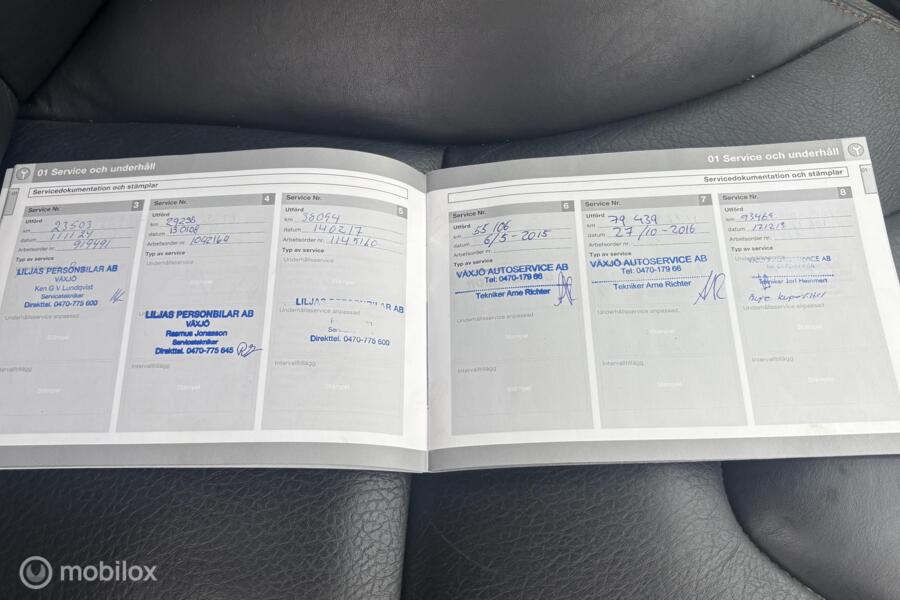 01 Service och underhåll
Servicedokumentation och stämplar
Service Nr. 3
Utförd
km 23503
datum 111124
Arbetsorder nr. 919491
Typ av service
LILJAS PERSONBILAR AB
VÄXJÖ
Ken G V Lundqvist
Servicetekniker
Direkttel. 0470-775 600
Underhållsservice anpassad
Intervalltillägg
Stämpel
Service Nr. 4
Utförd
km 29238
datum 130108
Arbetsorder nr. 1042164
Typ av service
Underhållsservice
LILJAS PERSONBILAR AB
VÄXJÖ
Rasmus Jonasson
Servicetekniker
Direkttel. 0470-775 645
Intervalltillägg
Stämpel
Service Nr. 5
Utförd
km 36094
datum 140217
Arbetsorder nr. 1145160
Typ av service
Underhållsservice
LILJAS PERSONBILAR AB
Direkttel. 0470-775 600
Intervalltillägg
Stämpel
01 Service och underhåll
Servicedokumentation och stämplar
Service Nr. 6
Utförd
km 55 106
datum 6/5-2015
Arbetsorder nr.
Typ av service
VÄXJÖ AUTOSERVICE AB
Tel: 0470-179 66
Tekniker Arne Richter
Underhållsservice anpassad
Intervalltillägg
Stämpel
Service Nr. 7
Utförd
km 79 439
datum 27/10-2016
Arbetsorder nr.
Typ av service
VÄXJÖ AUTOSERVICE AB
Tel: 0470-179 66
Tekniker Arne Richter
Underhållsservice anpassad
Intervalltillägg
Stämpel
Service Nr. 8
Utförd
km 93469
datum
Arbetsorder nr.
Typ av service
Underhållsservice
VÄXJÖ AUTOSERVICE AB
Underhållsservice anpassad
Intervalltillägg
Stämpel
mobilox